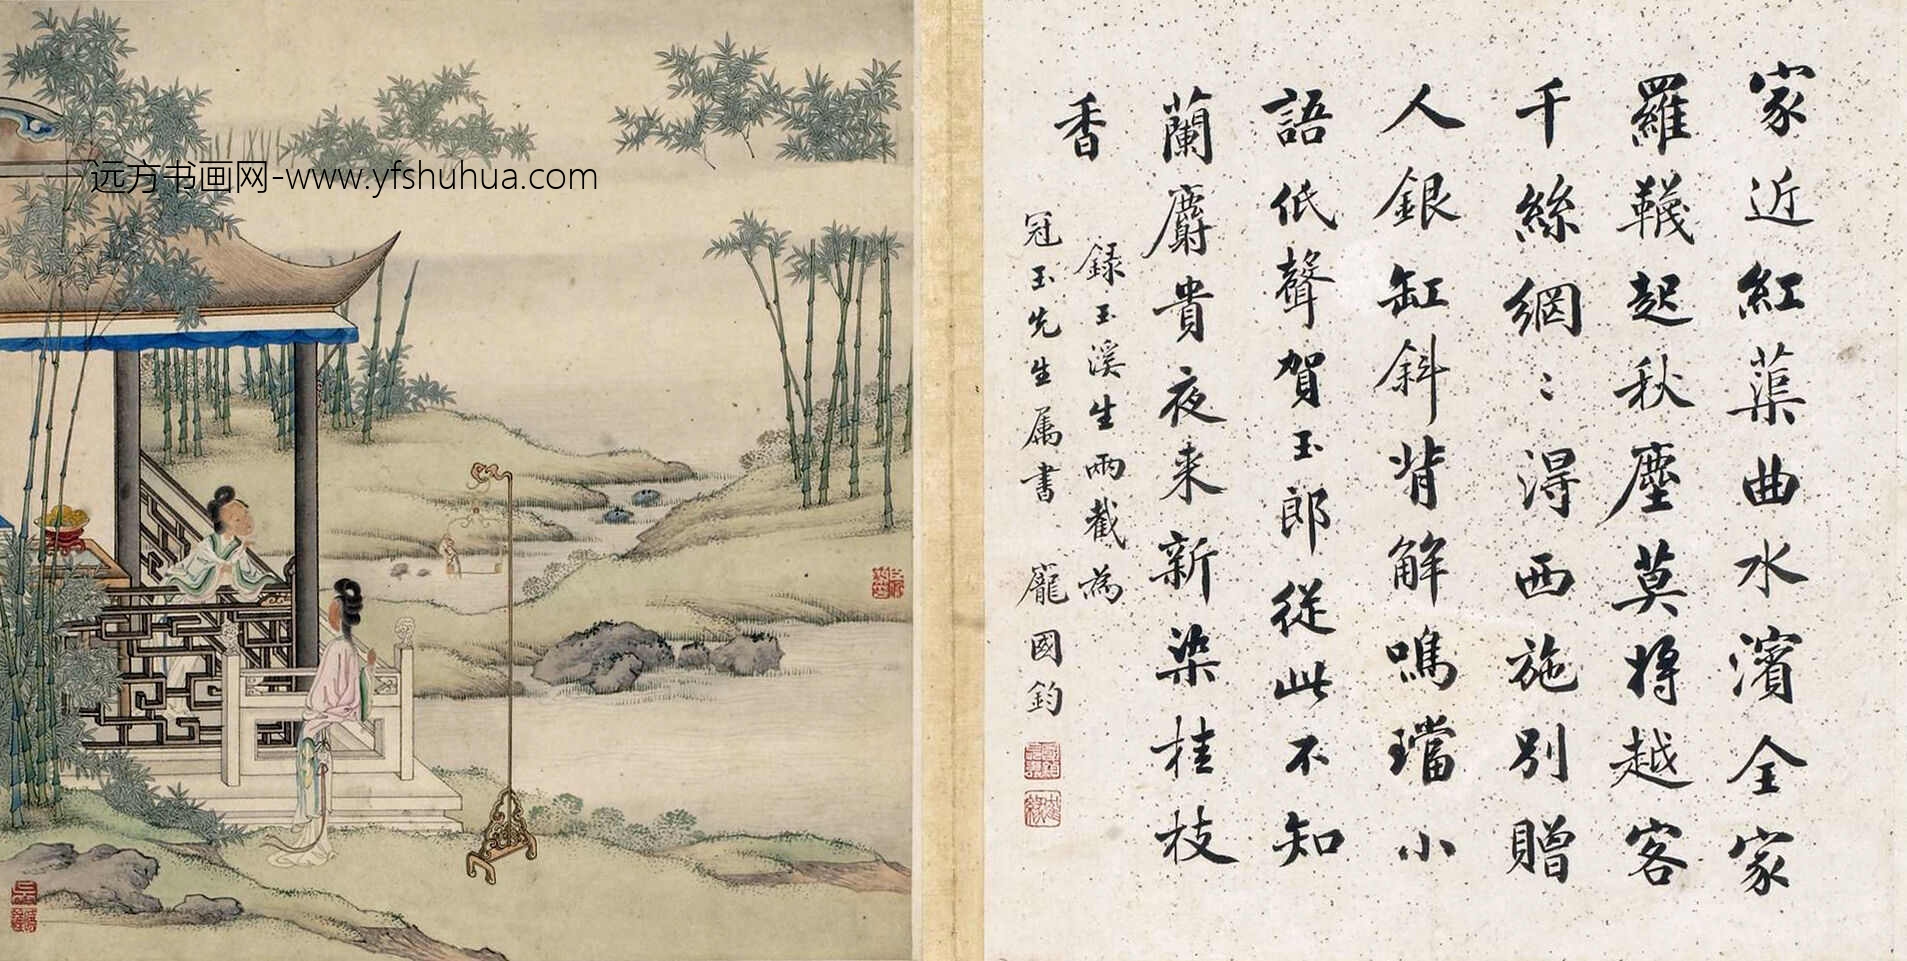 远方书画网-www.yfshuhua.com
家近紅蕖曲水濱全家
羅韈起秋塵莫將越客
千絲網ミ得西施別贈
人銀缸斜背解鳴璫小
語低聲賀玉郎從此不知
蘭麝貴夜来新染桂枝
香
録玉溪生兩截為
冠玉先生属書 龐國鈞